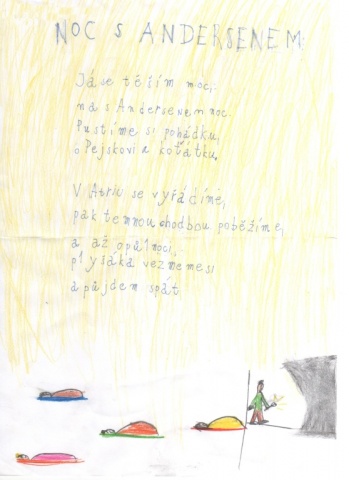 NOC S ANDERSENEM
Já se těším moci
na s Andersenem noc.
Pustíme si pohádku,
o Pejskovi a koťátku,
V Atriu se vyřádíme,
pak temnou chodbou poběžíme,
a až o půlnoci,
plyšáka vezmeme si
a půjdem spát